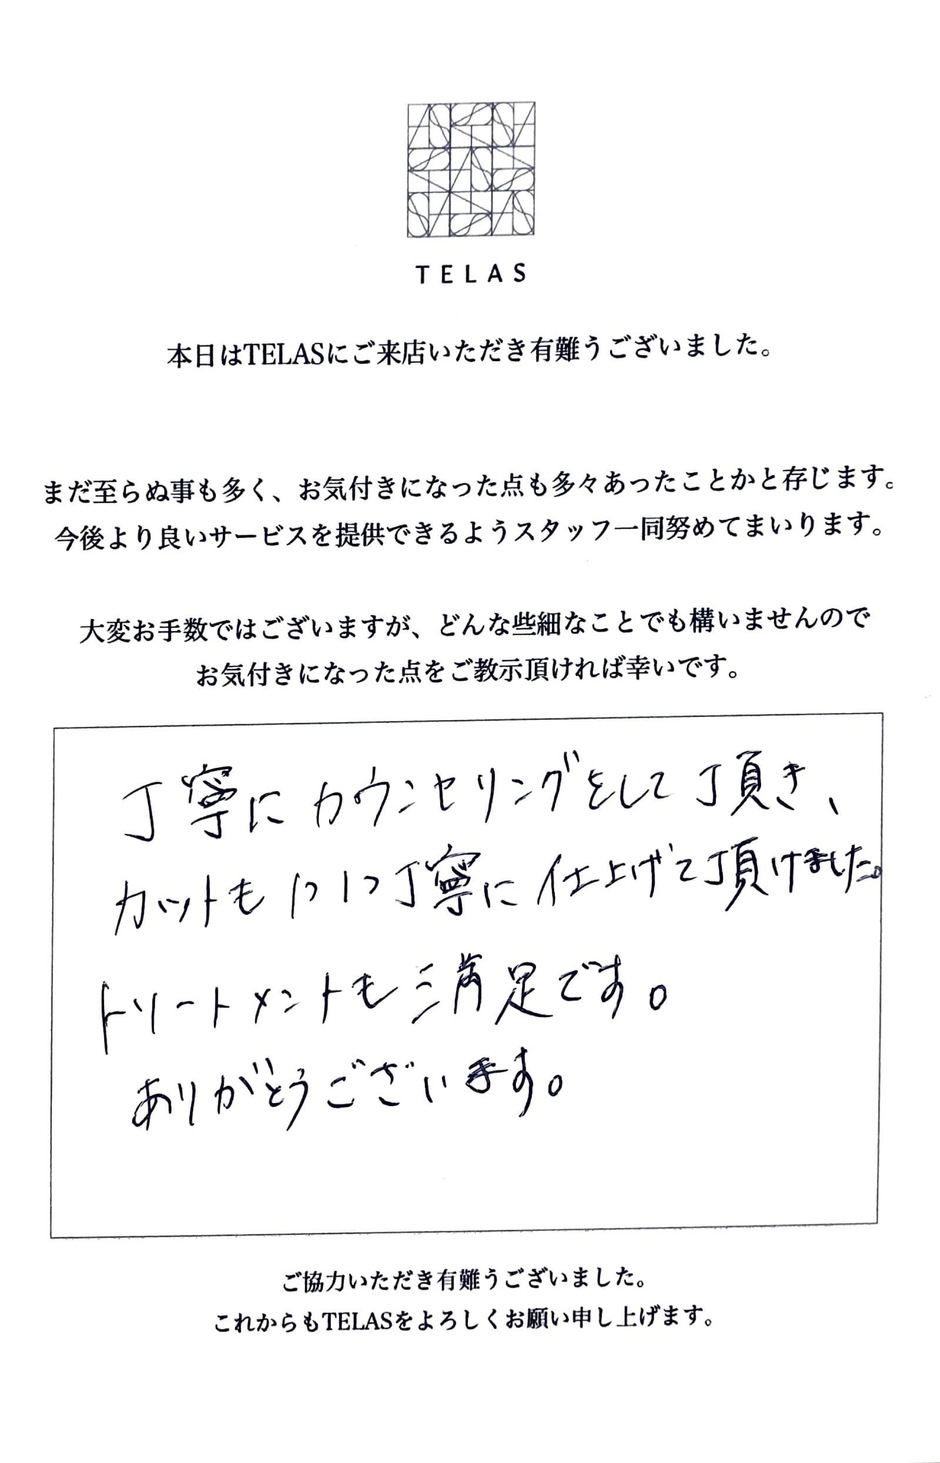 TELAS
本日はTELASにご来店いただき有難うございました。
まだ至らぬ事も多く、お気付きになった点も多々あったことかと存じます。
今後より良いサービスを提供できるようスタッフ一同努めてまいります。
大変お手数ではございますが、どんな些細なことでも構いませんので
お気付きになった点をご教示頂ければ幸いです。
丁寧にカウンセリングをして頂き、
カットも1つ1つ丁寧に仕上げて頂けました。
トリートメントも満足です。
ありがとうございます。
ご協力いただき有難うございました。
これからもTELASをよろしくお願い申し上げます。